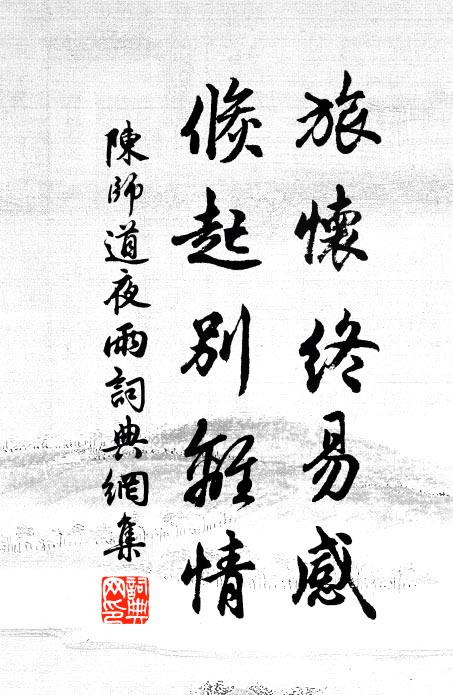 旅懷終易感
倏起別離情
陳師道夜雨詞典網集
詞典